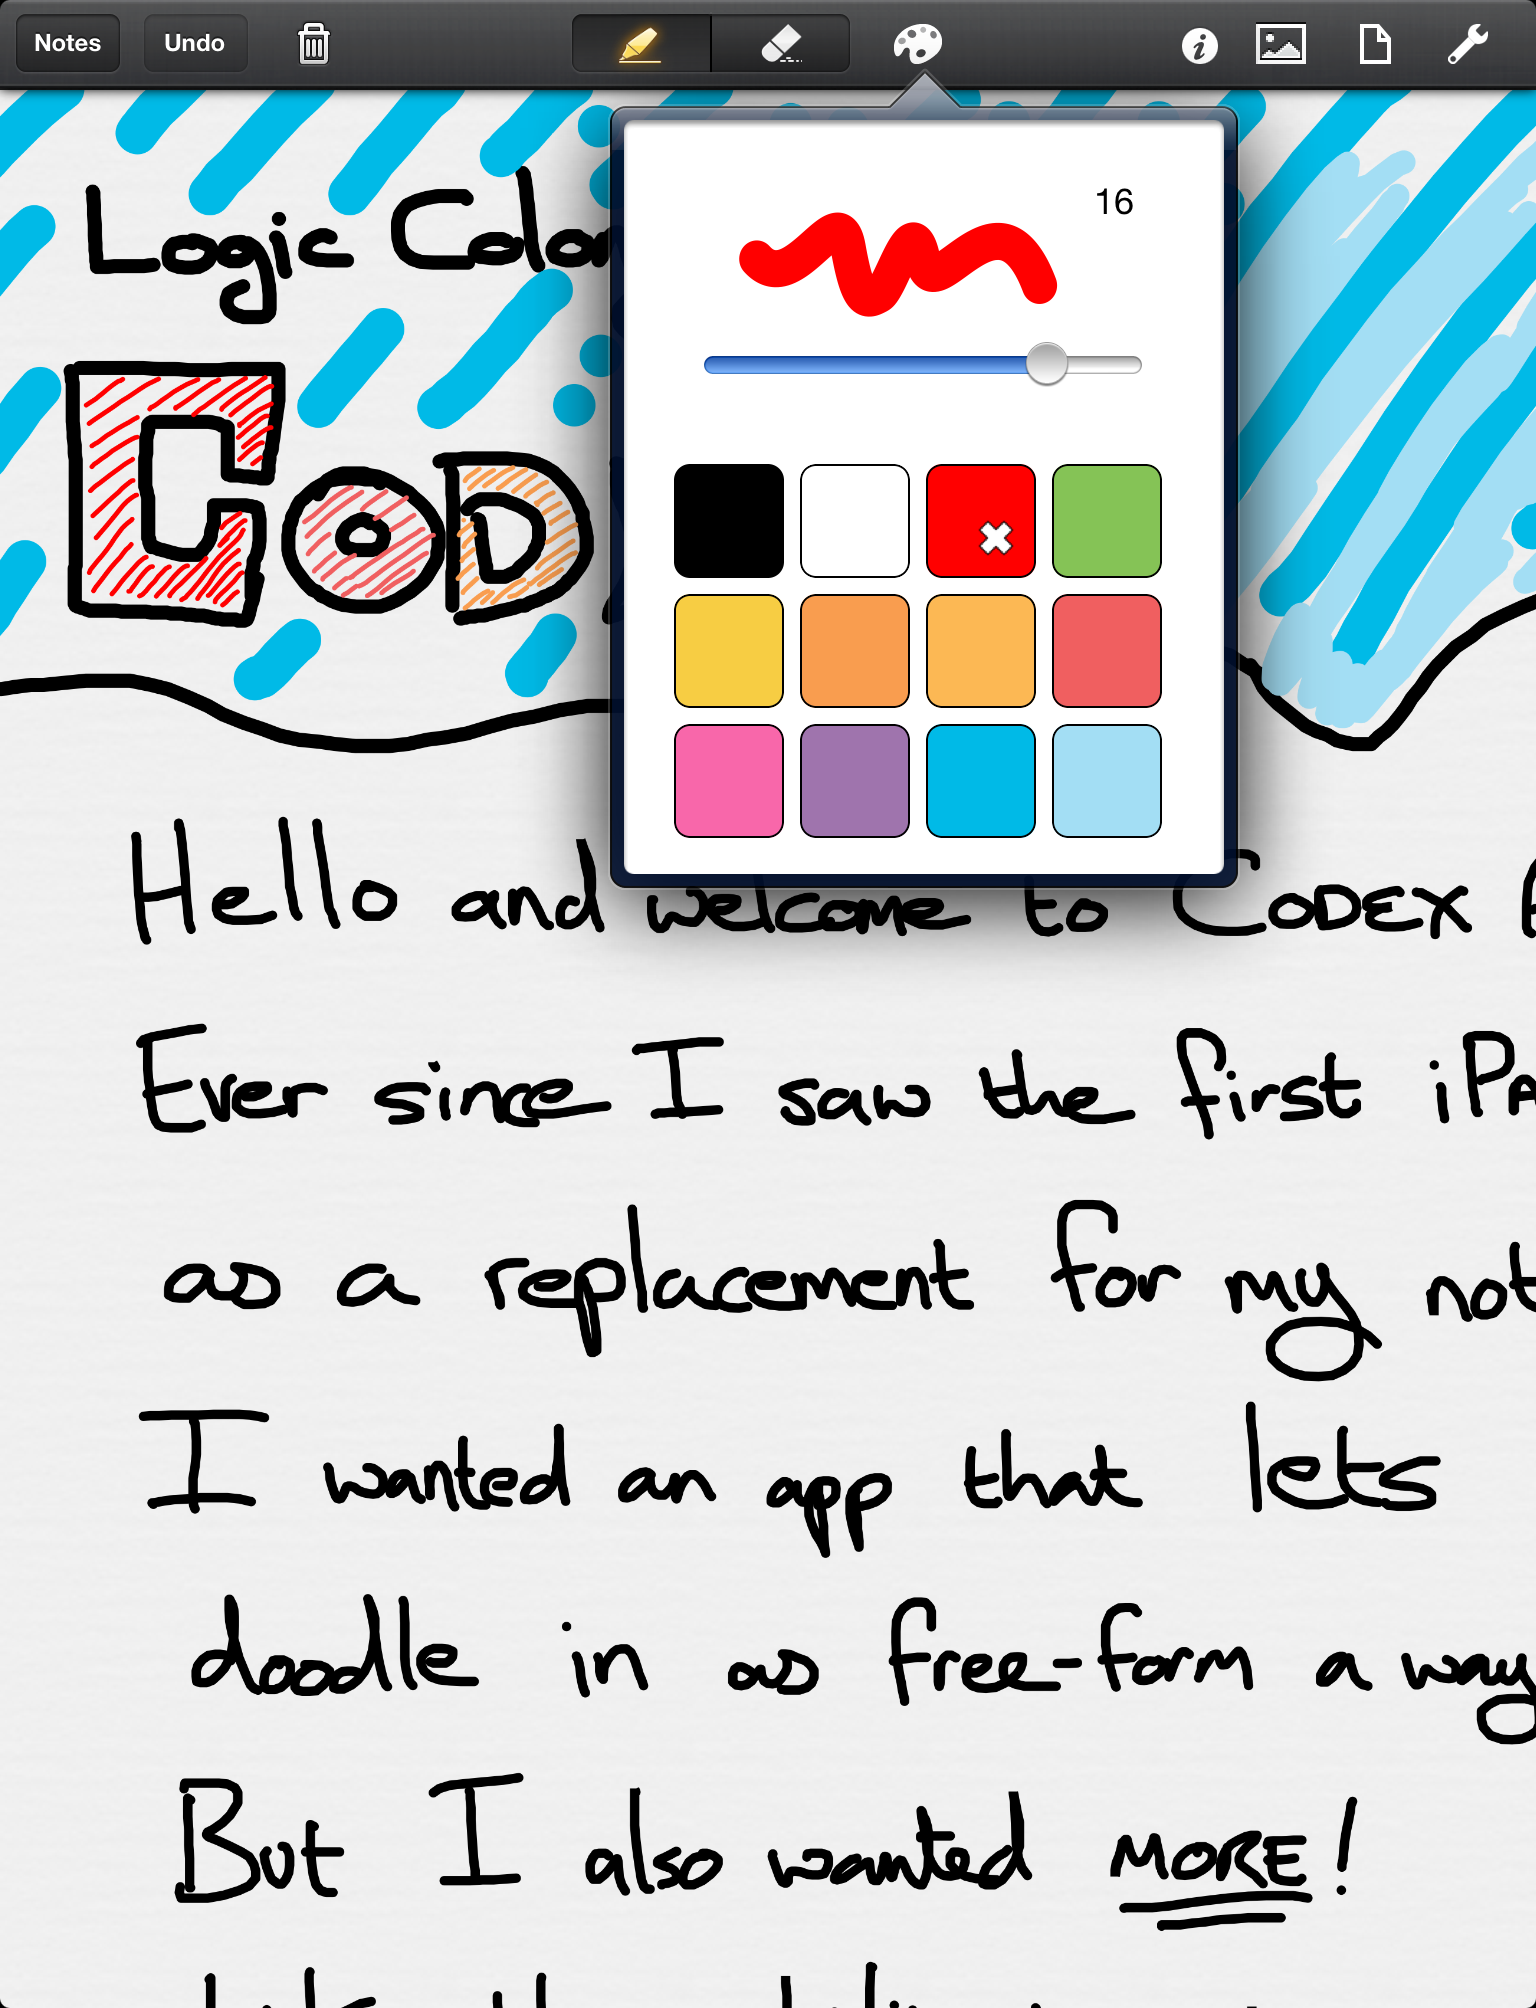 Notes Undo
16
Logic Color
COD
Hello and welcome to CODEX
Ever since I saw the first iPA
as a replacement for my not
I wanted an app that lets
doodle in as free-form a way
But I also wanted MORE!